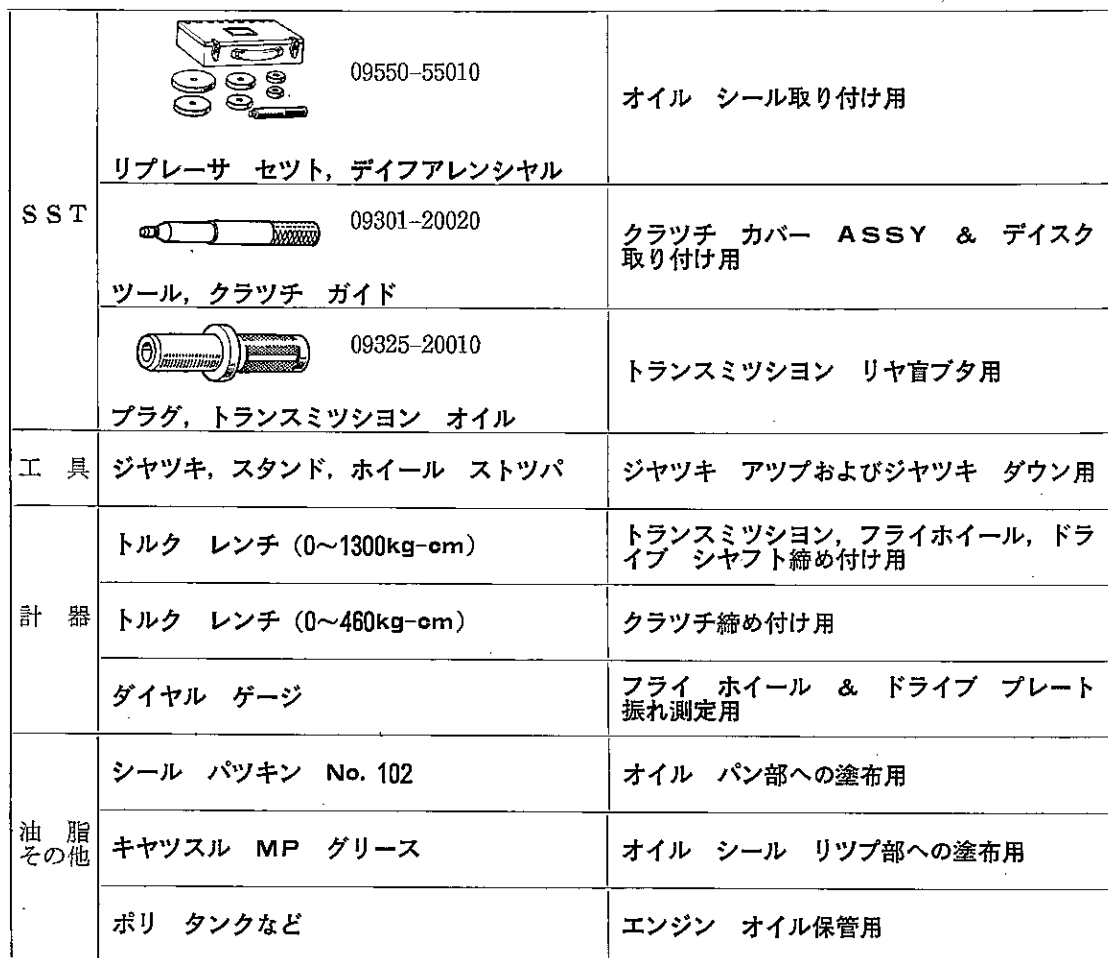 SST
09550-55010
リプレーサ セツト, デイフアレンシヤル
オイル シール取り付け用
09301-20020
ツール, クラツチ ガイド
クラツチ カバー ASSY & デイスク
取り付け用
09325-20010
プラグ, トランスミツシヨン オイル
トランスミツシヨン リヤ盲ブタ用
工 具
ジヤツキ, スタンド, ホイール ストツパ
ジヤツキ アツプおよびジヤツキ ダウン用
計 器
トルク レンチ (0~1300kg-cm)
トランスミツシヨン, フライホイール, ドラ
イブ シヤフト締め付け用
トルク レンチ (0~460kg-cm)
クラツチ締め付け用
ダイヤル ゲージ
フライ ホイール & ドライブ プレート
振れ測定用
油 脂
その他
シール パツキン No. 102
オイル パン部への塗布用
キヤツスル MP グリース
オイル シール リツプ部への塗布用
ポリ タンクなど
エンジン オイル保管用